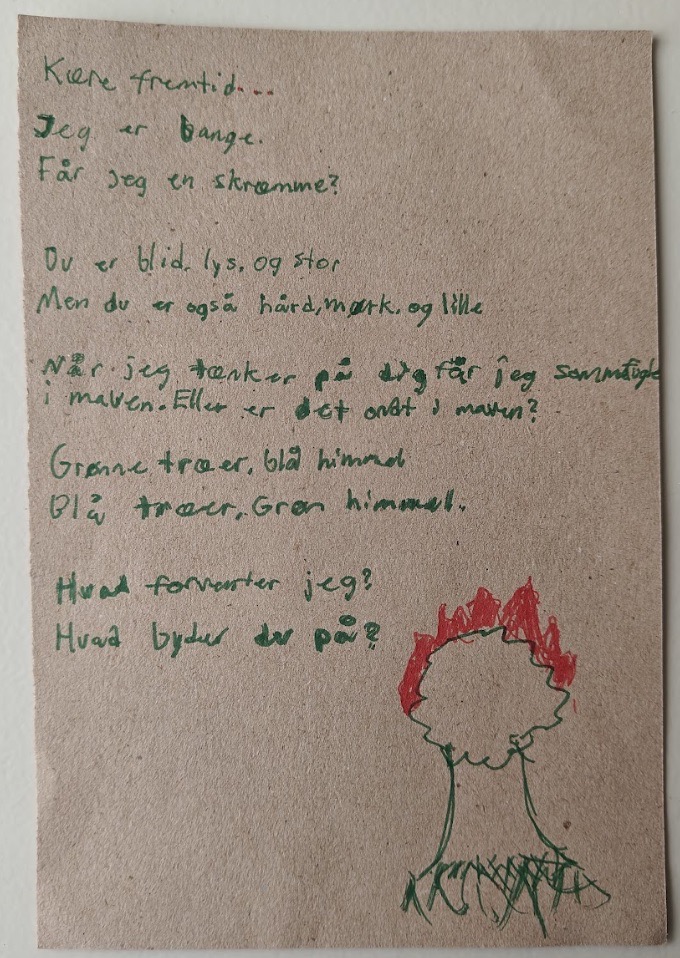 Kære fremtid...
Jeg er bange.
Får jeg en skræmme?
Du er blid, lys, og stor
Men du er også hård, mørk, og lille
Når jeg tænker på dig får jeg sommerfugle
i maven. Eller er det ondt i maven?
Grønne træer, blå himmel
Blå træer, Grøn himmel.
Hvad forventer jeg?
Hvad byder du på?